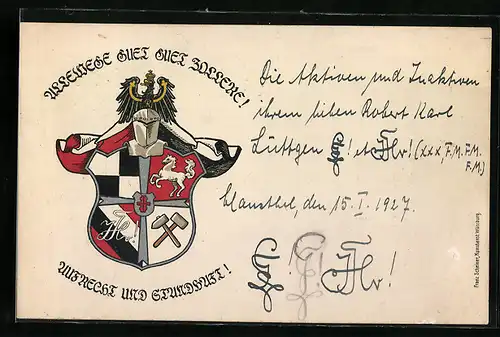 ALLEWEGE GUET GUET ZOLLERE!
Die Aktiven und Inaktiven
ihrem lieben Robert Karl
Lüttgen
(xxx, F.M. F.M.
F.M.)
Clausthal, den 15. I. 1927.
AUFRECHT UND STANDHAFT!
Franz Scheiner, Kunstanst. Würzburg